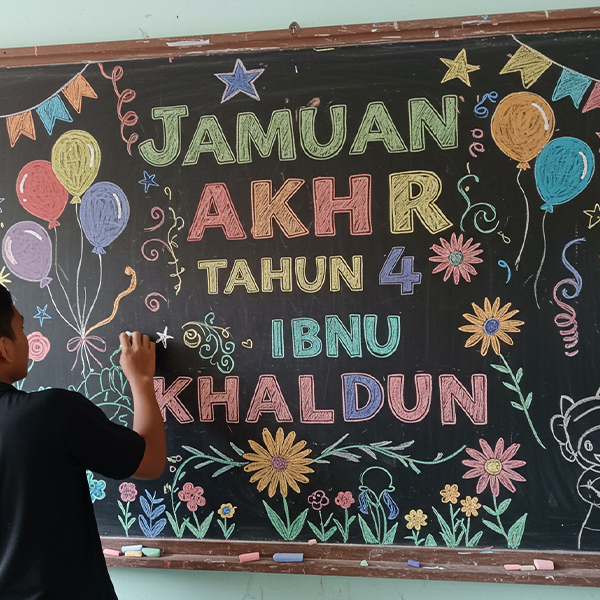 JAMUAN
AKHR
TAHUN 4
IBNU
KHALDUN